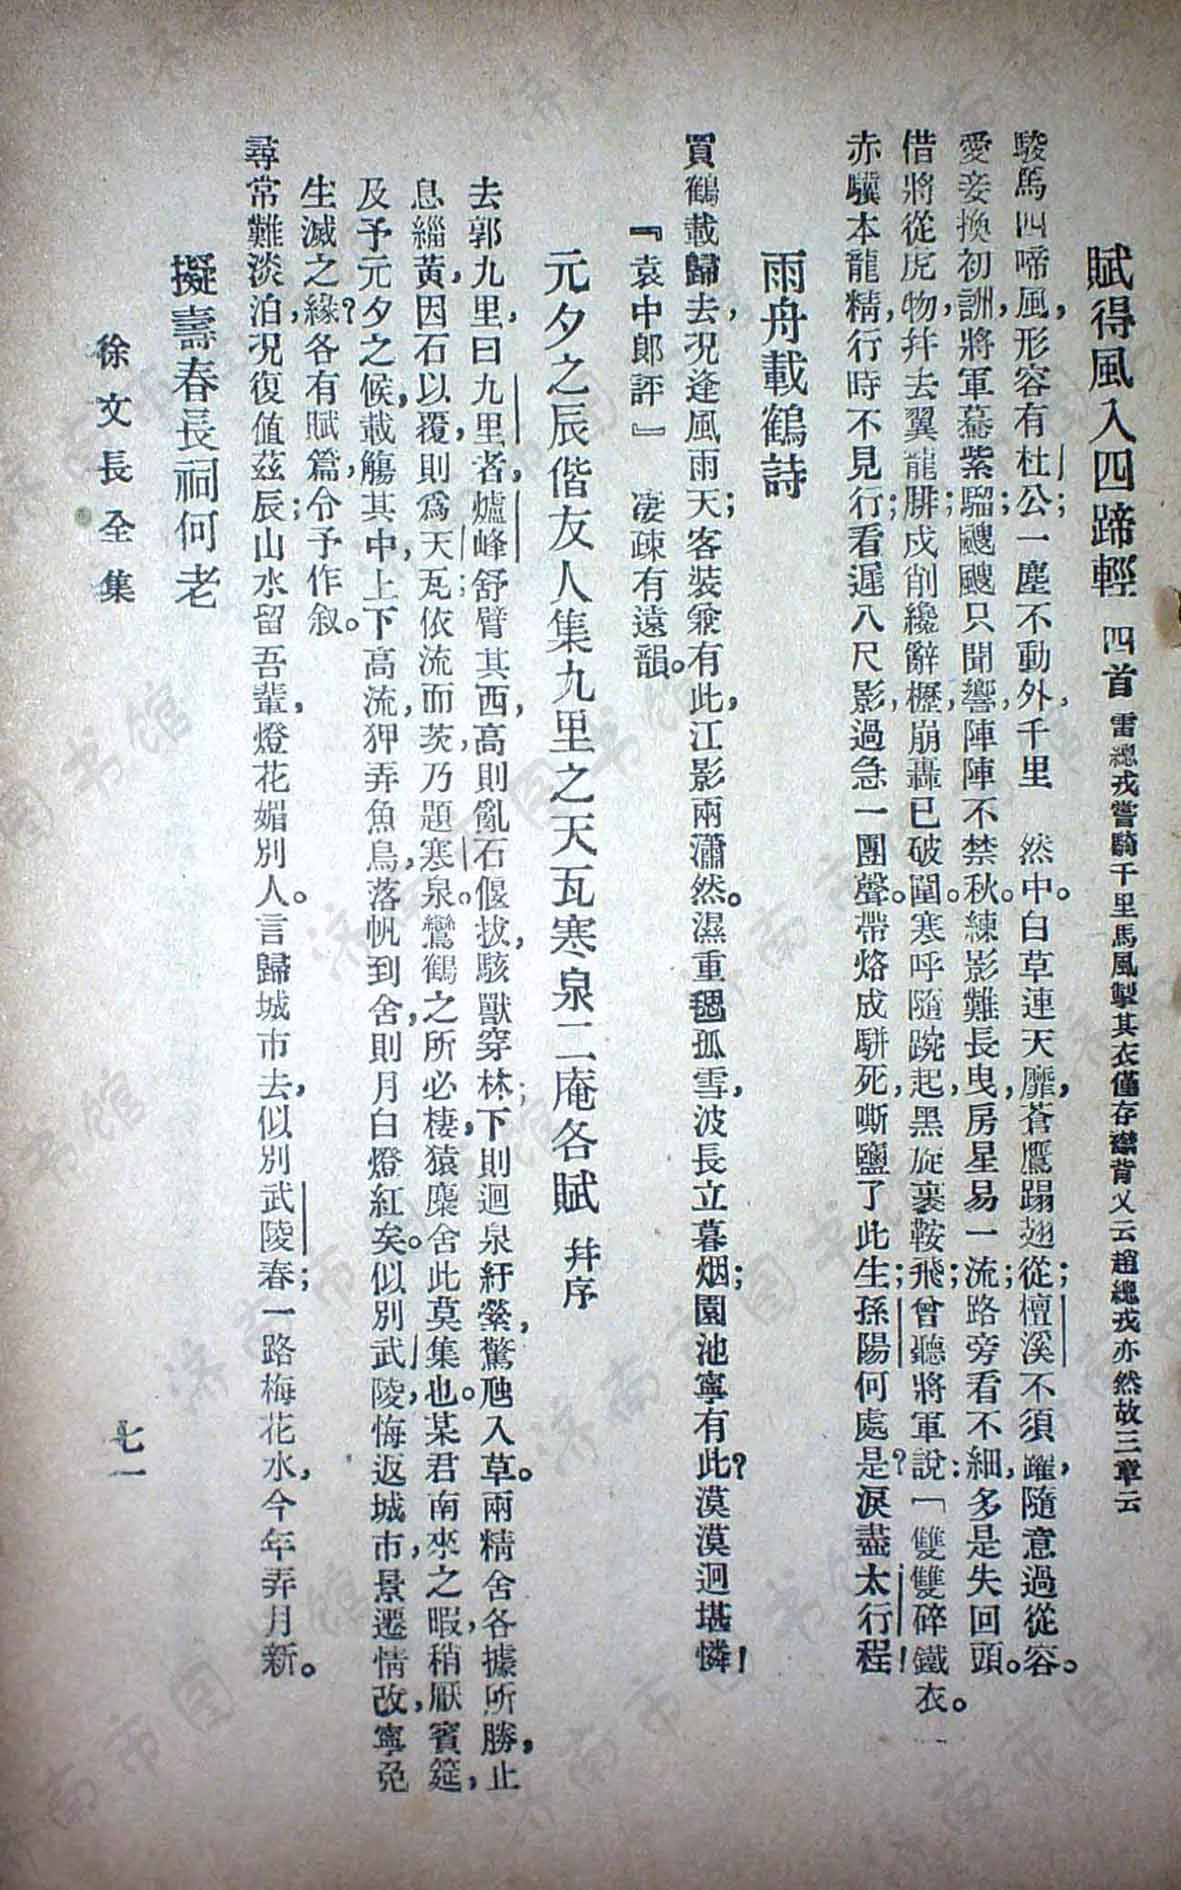 賦得風入四蹄輕　四首　雷總戎嘗騎千里馬風掣其衣僅存襟背又云趙總戎亦然故三章云
駿馬四啼風，形容有杜公；一塵不動外，千里　然中。白草連天靡，蒼鷹蹋翅從；檀溪不須躍，隨意過從容。
愛妾換初詶，將軍幕紫騮；颼颼只聞響，陣陣不禁秋。練影難長曳，房星易一流；路旁看不細，多是失回頭。
借將從虎物，幷去翼龍腓；戍削纔辭櫪，崩轟已破圍。寒呼隨踠起，黑旋裹鞍飛；曾聽將軍說：「雙雙碎鐵衣。」
赤驥本龍精，行時不見行；看遲八尺影，過急一團聲。帶烙成駢死，嘶鹽了此生；孫陽何處是？淚盡太行程！
雨舟載鶴詩
買鶴載歸去，況逢風雨天；客裝兼有此，江影兩瀟然。濕重毸孤雪，波長立暮烟；園池寧有此？漠漠迥堪憐！
『袁中郎評』　凄疎有遠韻。
元夕之辰偕友人集九里之天瓦寒泉二庵各賦　幷序
去郭九里，曰九里者，爐峰舒臂其西，高則亂石偃拔，駭獸穿林；下則迴泉紆縈，驚虺入草。兩精舍各據所勝，止
息緇黃，因石以覆，則爲天瓦；依流而茨，乃題寒泉。鸞鶴之所必棲，猿麋舍此莫集也。某君南來之暇，稍厭賓筵，
及予元夕之候，載觴其中，上下高流，狎弄魚鳥，落帆到舍，則月白燈紅矣。似別武陵，悔返城市，景遷情改，寧免
生滅之緣？各有賦篇，令予作叙。
尋常難淡泊，況復値茲辰；山水留吾輩，燈花媚別人。言歸城市去，似別武陵春；一路梅花水，今年弄月新。
擬壽春長祠何老
徐文長全集
七一